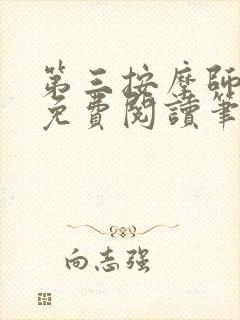 第三按摩師
免費閱讀筆
向志强